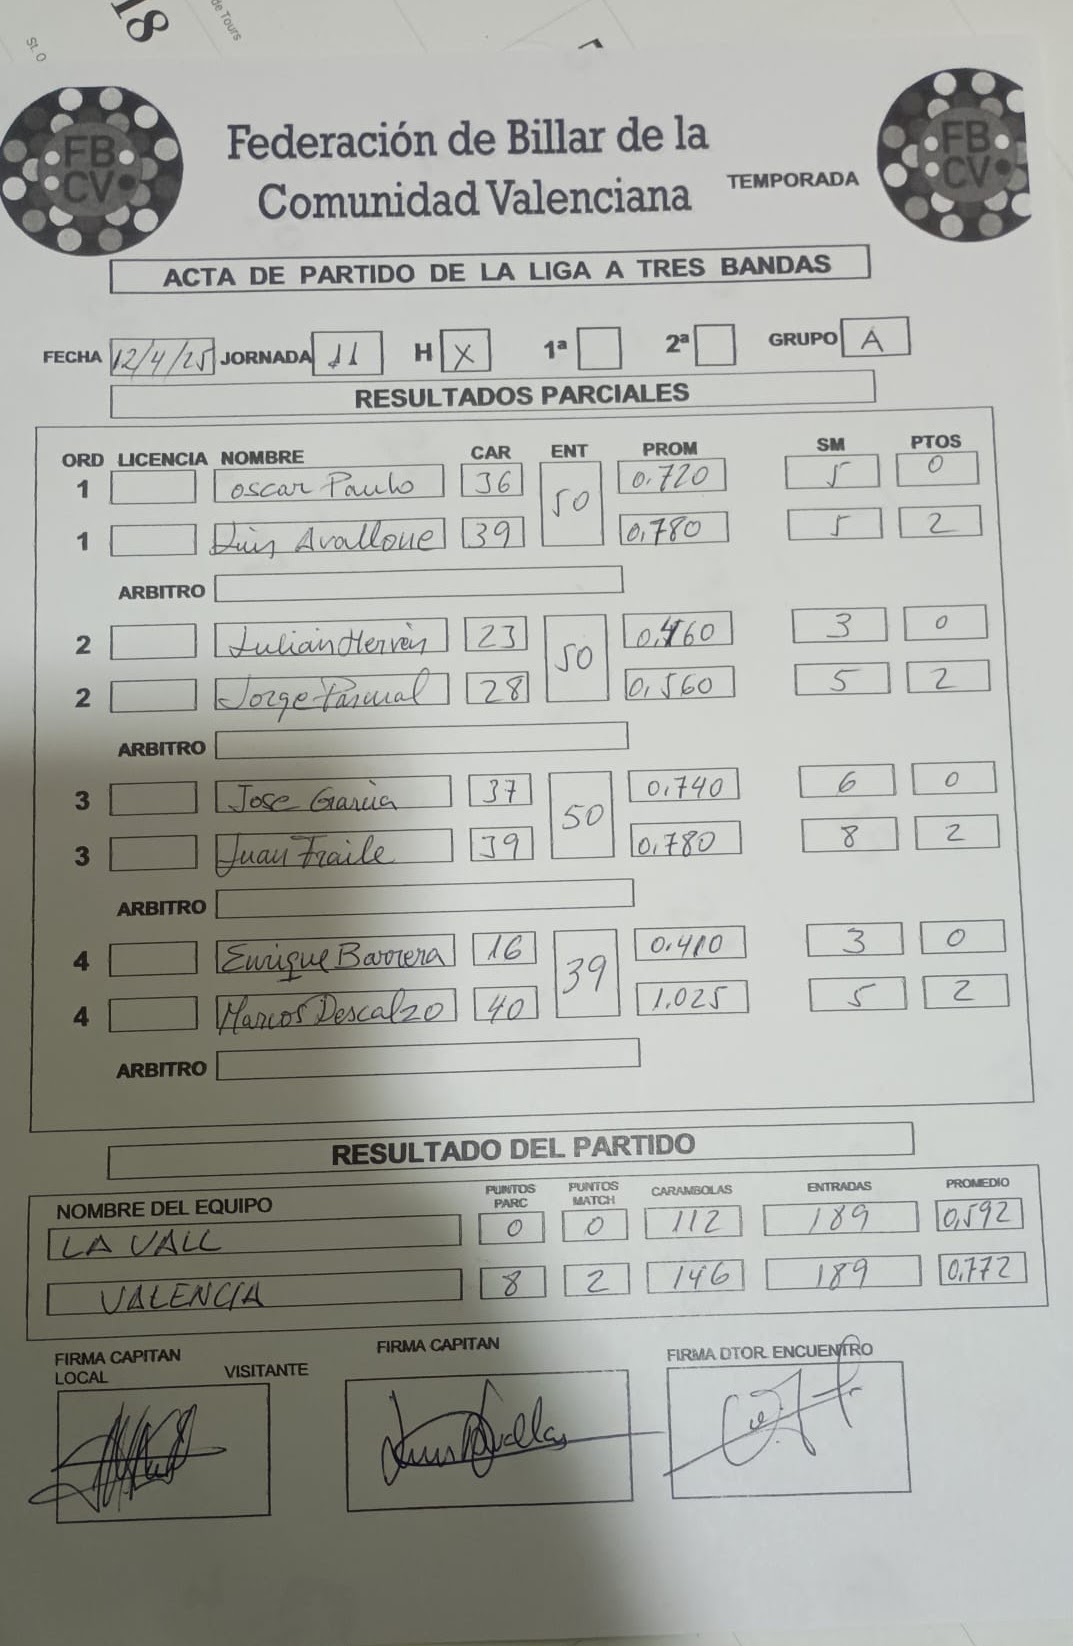 18
de Tours
St. O
FB
CV
Federación de Billar de la
Comunidad Valenciana
TEMPORADA
FB
CV
ACTA DE PARTIDO DE LA LIGA A TRES BANDAS
FECHA 12/4/25 JORNADA 11 H X 1ª 2ª GRUPO A
RESULTADOS PARCIALES
ORD LICENCIA NOMBRE CAR ENT PROM SM PTOS
1 Oscar Paulo 36 50 0.720 5 0
1 Luis Avallone 39 0,780 5 2
ARBITRO
2 Julián 23 50 0,460 3 0
2 Jorge Pascual 28 0,560 5 2
ARBITRO
3 Jose García 37 50 0.740 6 0
3 Juan Fraile 39 0,780 8 2
ARBITRO
4 Enrique Barrera 16 39 0.410 3 0
4 Marcos Descalzo 40 1.025 5 2
ARBITRO
RESULTADO DEL PARTIDO
NOMBRE DEL EQUIPO PUNTOS PARC PUNTOS MATCH CARAMBOLAS ENTRADAS PROMEDIO
LA VALL 0 0 112 189 0,592
VALENCIA 8 2 146 189 0,772
FIRMA CAPITAN LOCAL VISITANTE FIRMA CAPITAN FIRMA DTOR. ENCUENTRO